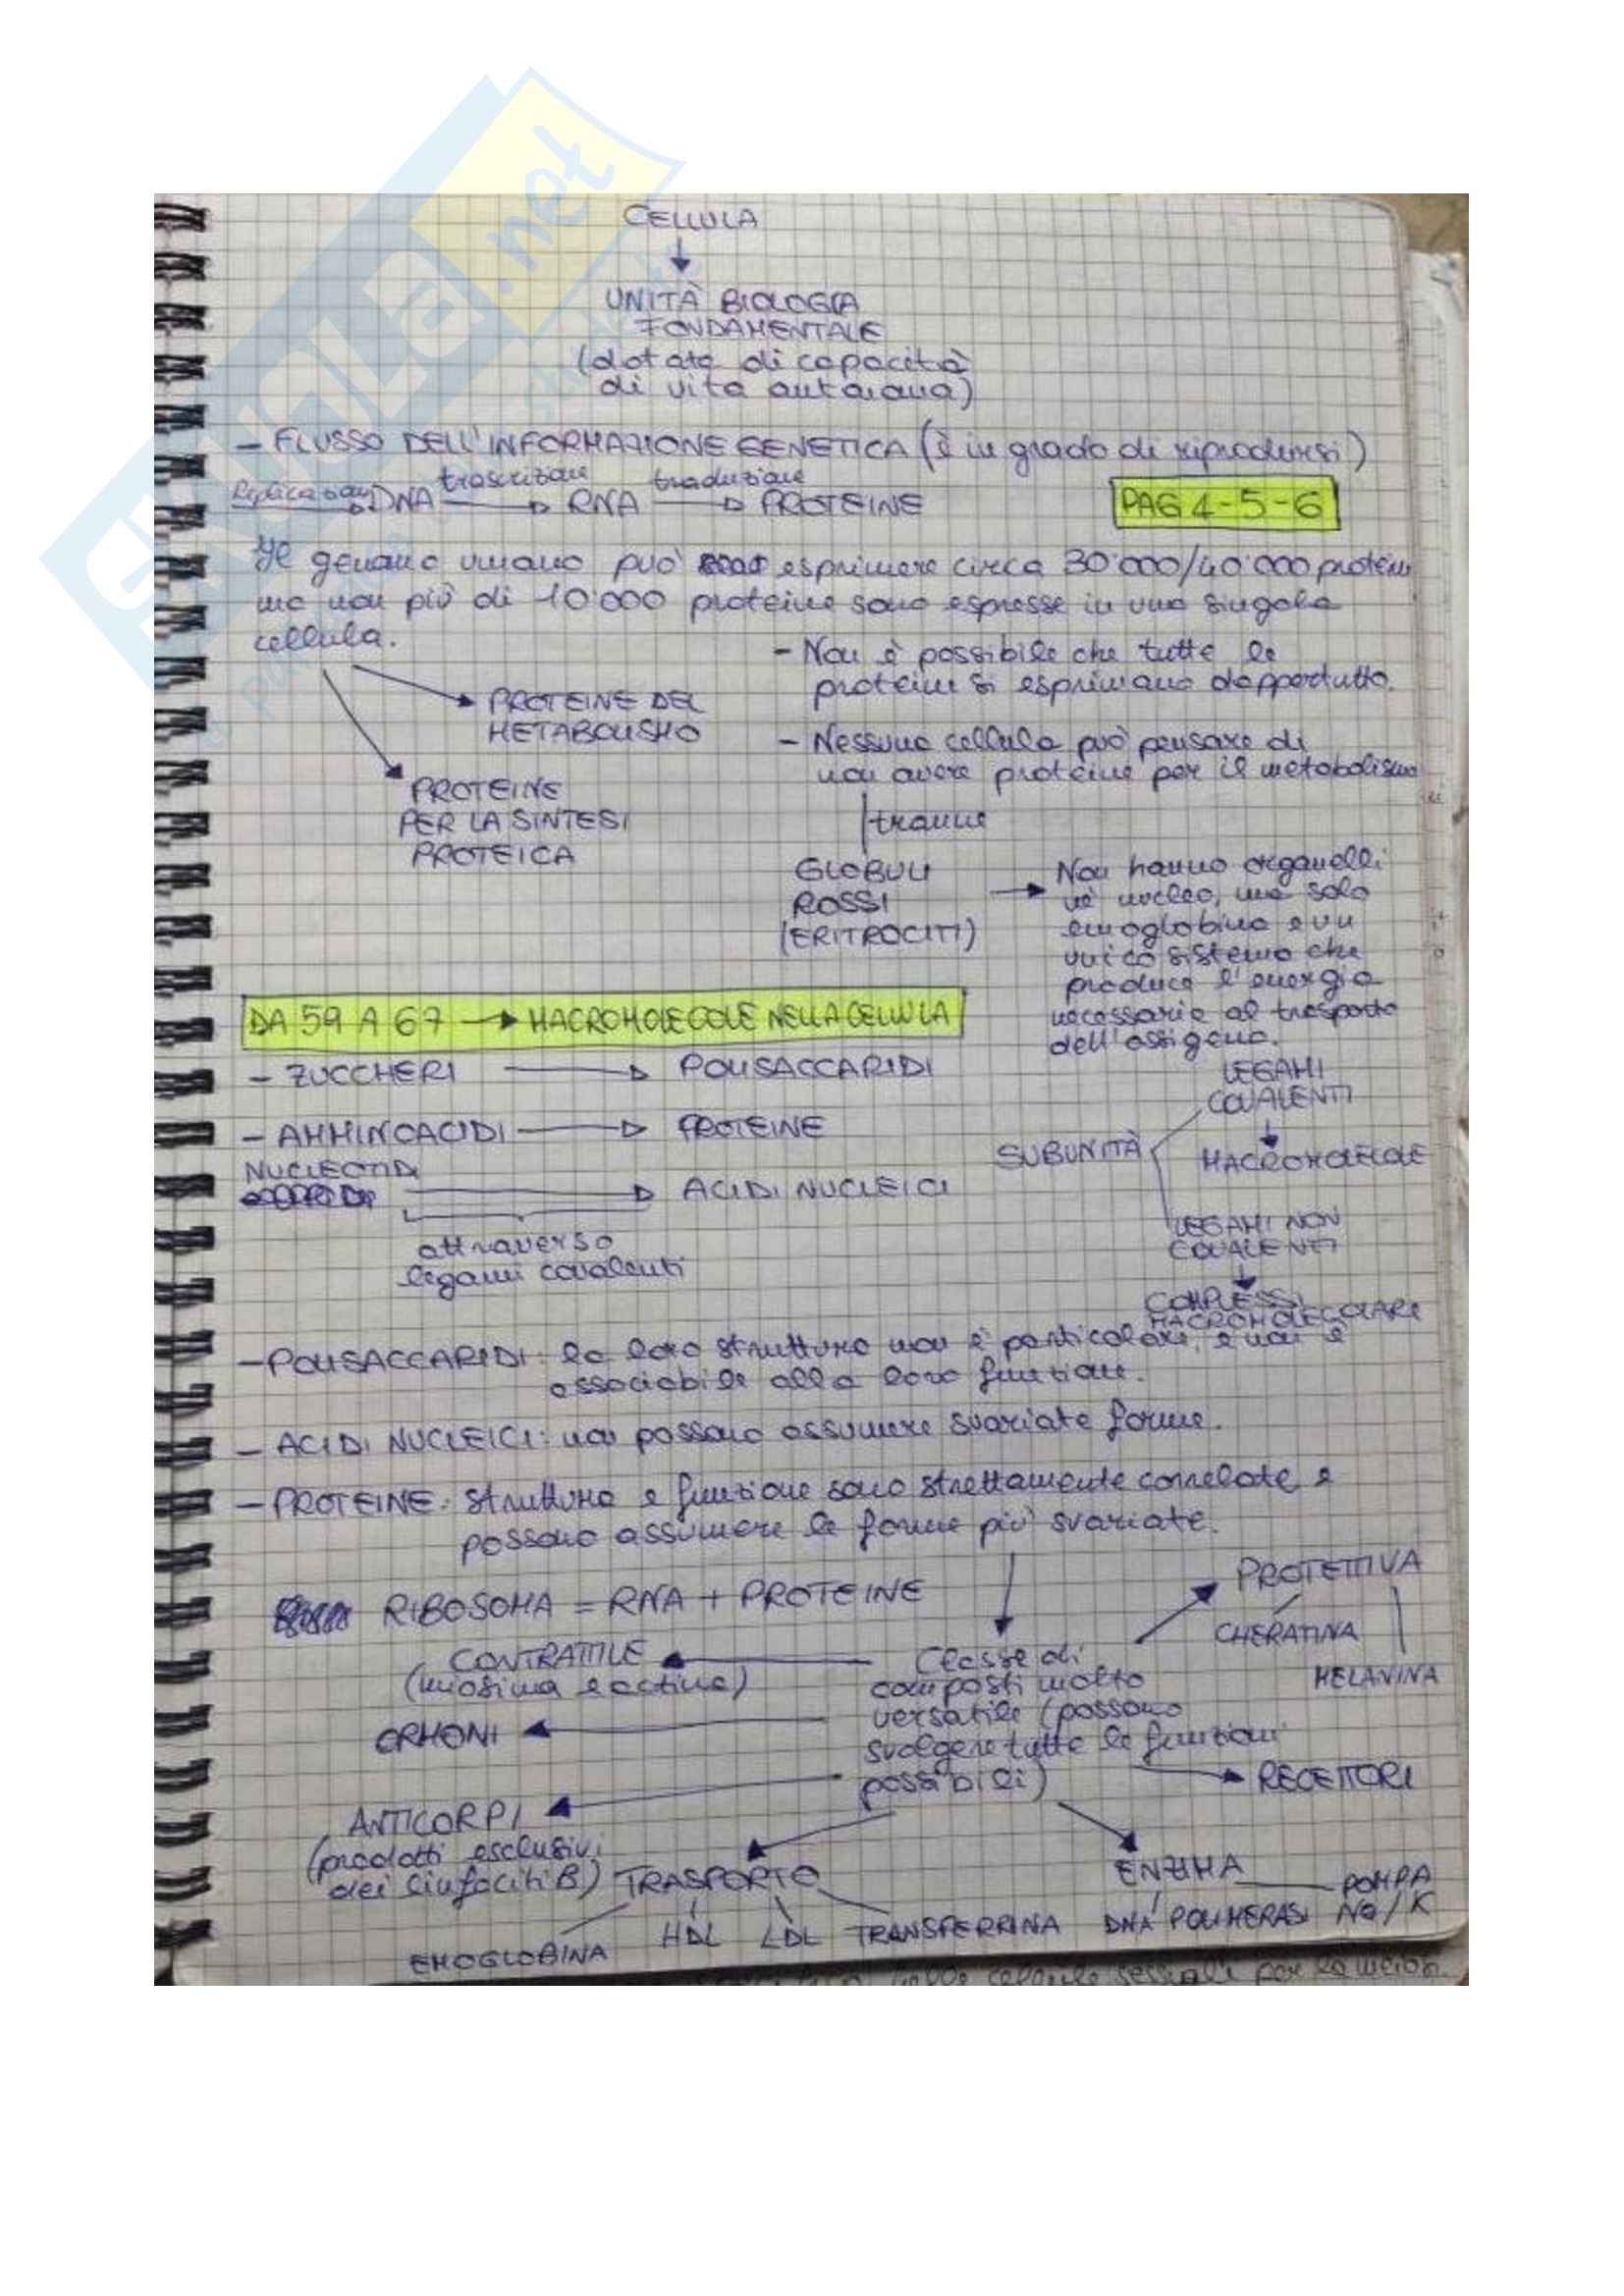 CELLULA
UNITÀ BIOLOGIA
FONDAMENTALE
(dotata di capacità
di vita autonoma)
- FLUSSO DELL'INFORMAZIONE GENETICA (è in grado di riprodursi)
Replicazione DNA trascrizione RNA traduzione PROTEINE
PAG 4-5-6
Il genoma umano può esprimere circa 30'000/40'000 proteine
ma non più di 10'000 proteine sono espresse in una singola
cellula.
- Non è possibile che tutte le
proteine si esprimano dappertutto.
PROTEINE DEL
METABOLISMO
- Nessuna cellula può pensare di
non avere proteine per il metabolismo
PROTEINE
PER LA SINTESI
PROTEICA
tranne
GLOBULI
ROSSI
(ERITROCITI)
Non hanno organelli
nè nucleo, ma solo
emoglobina e un
unico sistema che
produce l'energia
necessaria al trasporto
dell'ossigeno.
DA 59 A 67 → MACROMOLECOLE NELLA CELLULA
- ZUCCHERI → POLISACCARIDI
- AMMINOACIDI → PROTEINE
NUCLEOTIDI → ACIDI NUCLEICI
attraverso
legami covalenti
SUBUNITÀ
LEGAMI
COVALENTI
MACROMOLECOLE
LEGAMI NON
COVALENTI
COMPLESSI
MACROMOLECOLARI
- POLISACCARIDI: la loro struttura non è particolare, e non è
associabile alla loro funzione.
- ACIDI NUCLEICI: non possono assumere svariate forme.
- PROTEINE: struttura e funzione sono strettamente correlate e
possono assumere le forme più svariate.
RIBOSOMA = RNA + PROTEINE
Classe di
composti molto
versatile (possono
svolgere tutte le funzioni
possibili)
PROTETTIVA
CHERATINA
MELANINA
CONTRATTILE
(miosina e actina)
ORMONI
RECETTORI
ANTICORPI
(prodotti esclusivi
dei linfociti B)
TRASPORTO
EMOGLOBINA
HDL
LDL
TRANSFERRINA
ENZIMA
DNA POLIMERASI
POMPA
Na/K